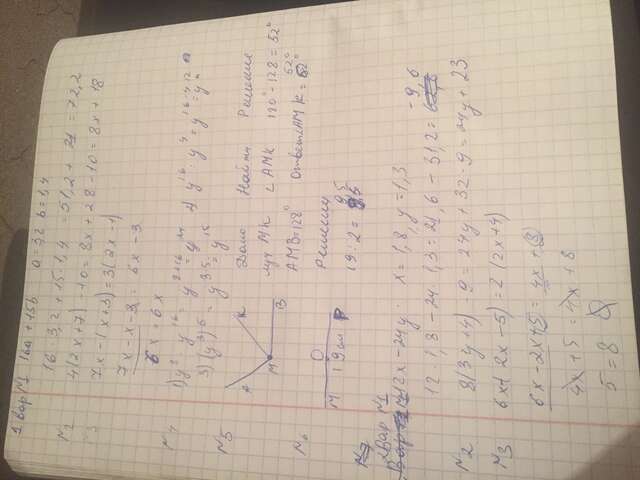 1 вар №1 16a + 15b a = 3,2 b = 1,4
16 · 3,2 + 15 · 1,4 = 51,2 + 21 = 72,2
№2 4(2x+7) - 10 = 8x + 28 - 10 = 8x + 18
№3 7x - (x+3) = 3(2x-1)
7x - x - 3 = 6x - 3
6x = 6x
№4
№5
A K M B
Дано Найти Решение
луч MK ∠AMK 180° - 128 = 52°
AMB = 128° Ответ ∠AMK = 52°
№6
O M 19 см P
Решение
19 : 2 = 9,5
№7
2 Вар №1
12x - 24y x = 1,8, y = 1,3
12 · 1,8 - 24 · 1,3 = 21,6 - 31,2 = -9,6
№2 8(3y+4) - 9 = 24y + 32 - 9 = 24y + 23
№3 6x - (2x - 5) = 2(2x+4)
6x - 2x + 5 = 4x + 8
4x + 5 = 4x + 8
5 = 8